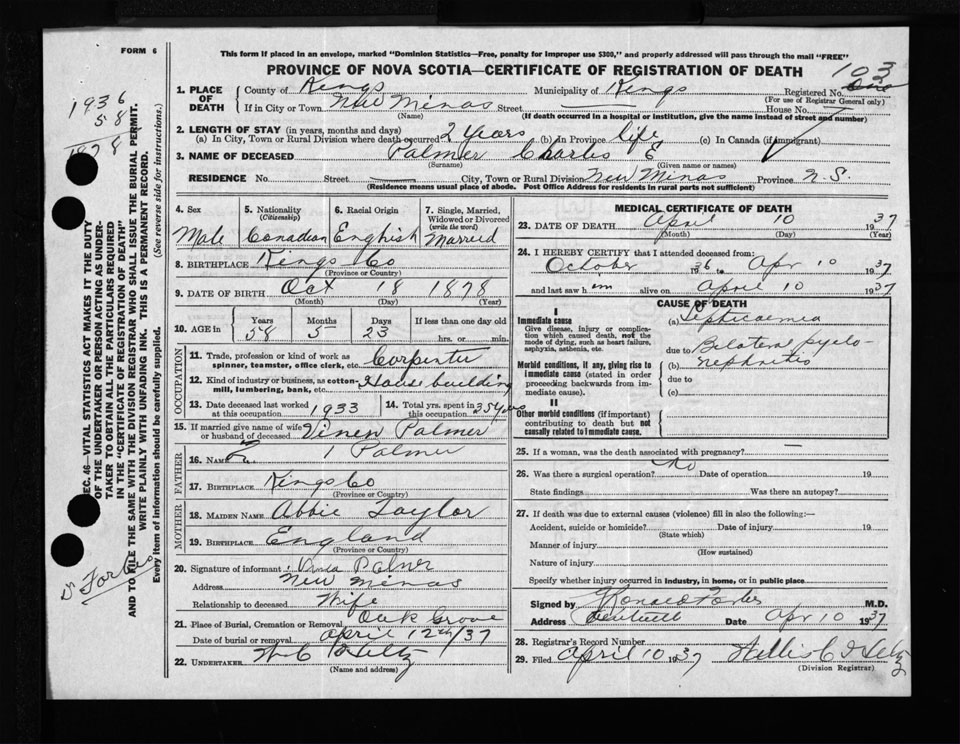 FORM 6
This form if placed in an envelope, marked "Dominion Statistics—Free, penalty for improper use $300," and properly addressed will pass through the mail "FREE"
PROVINCE OF NOVA SCOTIA—CERTIFICATE OF REGISTRATION OF DEATH
103
1936
58
1878
1. PLACE OF DEATH
County of Kings Municipality of Kings Registered No.
(For use of Registrar General only)
If in City or Town New Minas Street House No.
(Name) (If death occurred in a hospital or institution, give the name instead of street and number)
2. LENGTH OF STAY (in years, months and days)
(a) In City, Town or Rural Division where death occurred 2 years (b) In Province life (c) In Canada (if immigrant)
3. NAME OF DECEASED Palmer Charles E
(Surname) (Given name or names)
RESIDENCE No. Street City, Town or Rural Division New Minas Province N.S.
(Residence means usual place of abode. Post Office Address for residents in rural parts not sufficient)
4. Sex 5. Nationality (Citizenship) 6. Racial Origin 7. Single, Married, Widowed or Divorced (write the word)
Male Canadian English Married
8. BIRTHPLACE Kings Co
(Province or Country)
9. DATE OF BIRTH Oct 18 1878
(Month) (Day) (Year)
10. AGE in Years Months Days If less than one day old
58 5 23 hrs. or min.
OCCUPATION
11. Trade, profession or kind of work as spinner, teamster, office clerk, etc. Carpenter
12. Kind of industry or business, as cotton-mill, lumbering, bank, etc. House building
13. Date deceased last worked at this occupation 1933 14. Total yrs. spent in this occupation 35 years
15. If married give name of wife or husband of deceased Palmer
FATHER
16. NAME Palmer
17. BIRTHPLACE Kings Co
(Province or Country)
MOTHER
18. MAIDEN NAME Abbie Taylor
19. BIRTHPLACE England
(Province or Country)
20. Signature of informant Palmer
Address New Minas
Relationship to deceased Wife
21. Place of Burial, Cremation or Removal Oak Grove
Date of burial or removal April 12th/37
22. UNDERTAKER
(Name and address)
MEDICAL CERTIFICATE OF DEATH
23. DATE OF DEATH April 10 1937
(Month) (Day) (Year)
24. I HEREBY CERTIFY that I attended deceased from:
October 1936 to Apr 10 1937
and last saw him alive on April 10 1937
CAUSE OF DEATH
I
Immediate cause (a) Septicaemia
Give disease, injury or complication which caused death, not the mode of dying, such as heart failure, asphyxia, asthenia, etc.
due to Bilateral pyelo-
(b) nephritis
Morbid conditions, if any, giving rise to immediate cause (stated in order proceeding backwards from immediate cause).
due to
(c)
II
Other morbid conditions (if important) contributing to death but not causally related to immediate cause.
25. If a woman, was the death associated with pregnancy? —
26. Was there a surgical operation? No Date of operation 19
State findings Was there an autopsy?
27. If death was due to external causes (violence) fill in also the following:—
Accident, suicide or homicide? Date of injury 19
(State which)
Manner of injury
(How sustained)
Nature of injury
Specify whether injury occurred in industry, in home, or in public place
Signed by M.D.
Address Date Apr 10 1937
28. Registrar's Record Number
29. Filed April 10 1937
(Division Registrar)
SEC. 46—VITAL STATISTICS ACT MAKES IT THE DUTY OF THE UNDERTAKER OR PERSON ACTING AS UNDERTAKER TO OBTAIN ALL THE PARTICULARS REQUIRED IN THE "CERTIFICATE OF REGISTRATION OF DEATH" AND TO FILE THE SAME WITH THE DIVISION REGISTRAR WHO SHALL ISSUE THE BURIAL PERMIT.
WRITE PLAINLY WITH UNFADING INK. THIS IS A PERMANENT RECORD.
Every item of information should be carefully supplied. (See reverse side for instructions.)